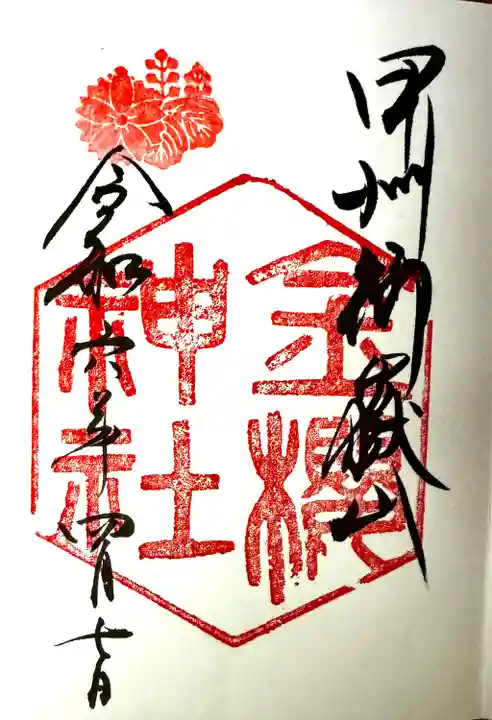 甲州御嶽山
金櫻
神社
令和六年四月七日